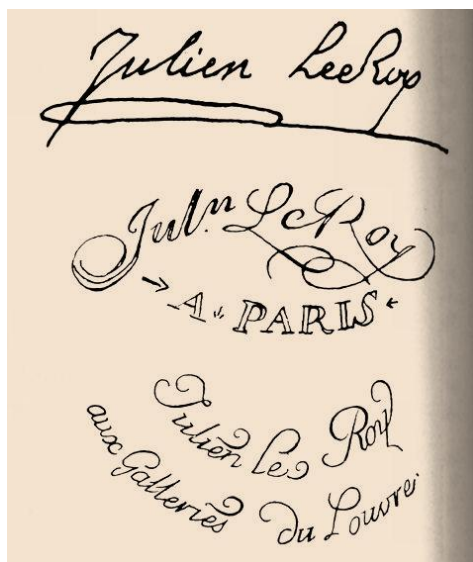 Julien LeeRoy
Jul.n LeRoy
A PARIS
Julien Le Roy
aux Galleries du Louvre